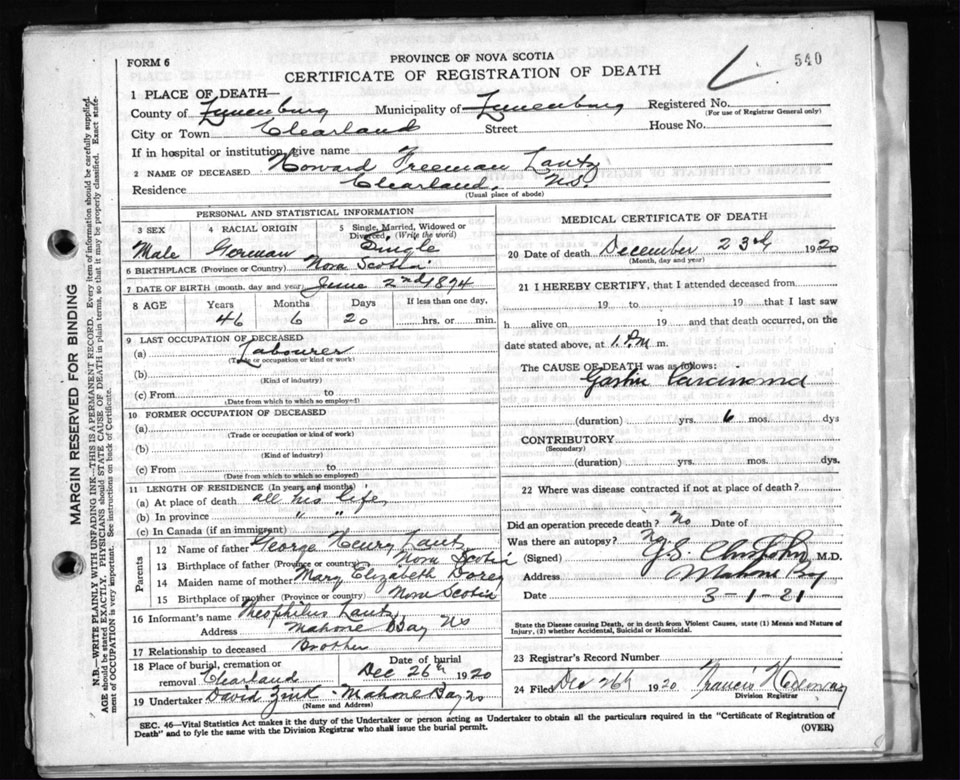 540
FORM 6
PROVINCE OF NOVA SCOTIA
CERTIFICATE OF REGISTRATION OF DEATH
1 PLACE OF DEATH—
County of Lunenburg Municipality of Lunenburg Registered No.
(For use of Registrar General only)
City or Town Clearland Street House No.
If in hospital or institution, give name
2 NAME OF DECEASED Howard Freeman Lantz
Residence Clearland, N.S.
(Usual place of abode)
PERSONAL AND STATISTICAL INFORMATION
3 SEX Male
4 RACIAL ORIGIN German
5 Single, Married, Widowed or Divorced (Write the word) Single
6 BIRTHPLACE (Province or Country) Nova Scotia
7 DATE OF BIRTH (month, day and year) June 2nd 1874
8 AGE Years Months Days If less than one day,
46 6 20 hrs. or min.
9 LAST OCCUPATION OF DECEASED
(a) Labourer
(Trade or occupation or kind or work)
(b)
(Kind of industry)
(c) From to
(Date from which to which so employed)
10 FORMER OCCUPATION OF DECEASED
(a)
(Trade or occupation or kind of work)
(b)
(Kind of industry)
(c) From to
(Date from which to which so employed)
11 LENGTH OF RESIDENCE (In years and months)
(a) At place of death all his life
(b) In province " "
(c) In Canada (if an immigrant)
Parents
12 Name of father George Henry Lantz
13 Birthplace of father (Province or country) Nova Scotia
14 Maiden name of mother Mary Elizabeth Dorey
15 Birthplace of mother (Province or country) Nova Scotia
16 Informant's name Theophilus Lantz
Address Mahone Bay NS
17 Relationship to deceased Brother
18 Place of burial, cremation or removal Clearland
Date of burial Dec 26th 1920
19 Undertaker David Zink - Mahone Bay NS
(Name and Address)
MEDICAL CERTIFICATE OF DEATH
20 Date of death December 23rd 1920
(Month, day and year)
21 I HEREBY CERTIFY, that I attended deceased from
19 to 19 that I last saw
h alive on 19 and that death occurred, on the
date stated above, at 1. P.M m.
The CAUSE OF DEATH was as follows:
Gastric Carcinoma
(duration) yrs. 6 mos. dys
CONTRIBUTORY
(Secondary)
(duration) yrs. mos. dys
22 Where was disease contracted if not at place of death?
Did an operation precede death? No Date of
Was there an autopsy? No
(Signed) M.D.
Address Mahone Bay
Date 3-1-21
State the Disease causing Death, or in death from Violent Causes, state (1) Means and Nature of
Injury, (2) whether Accidental, Suicidal or Homicidal.
23 Registrar's Record Number
24 Filed Dec 26th 1920 Francis
Division Registrar
SEC. 46—Vital Statistics Act makes it the duty of the Undertaker or person acting as Undertaker to obtain all the particulars required in the "Certificate of Registration of
Death" and to fyle the same with the Division Registrar who shall issue the burial permit. (OVER)
MARGIN RESERVED FOR BINDING
N.B.—WRITE PLAINLY WITH UNFADING INK—THIS IS A PERMANENT RECORD. Every item of information should be carefully supplied.
AGE should be stated EXACTLY. PHYSICIANS should STATE CAUSE OF DEATH in plain terms, so that it may be properly classified. Exact state-
ment of OCCUPATION is very important. See instructions on back of Certificate.